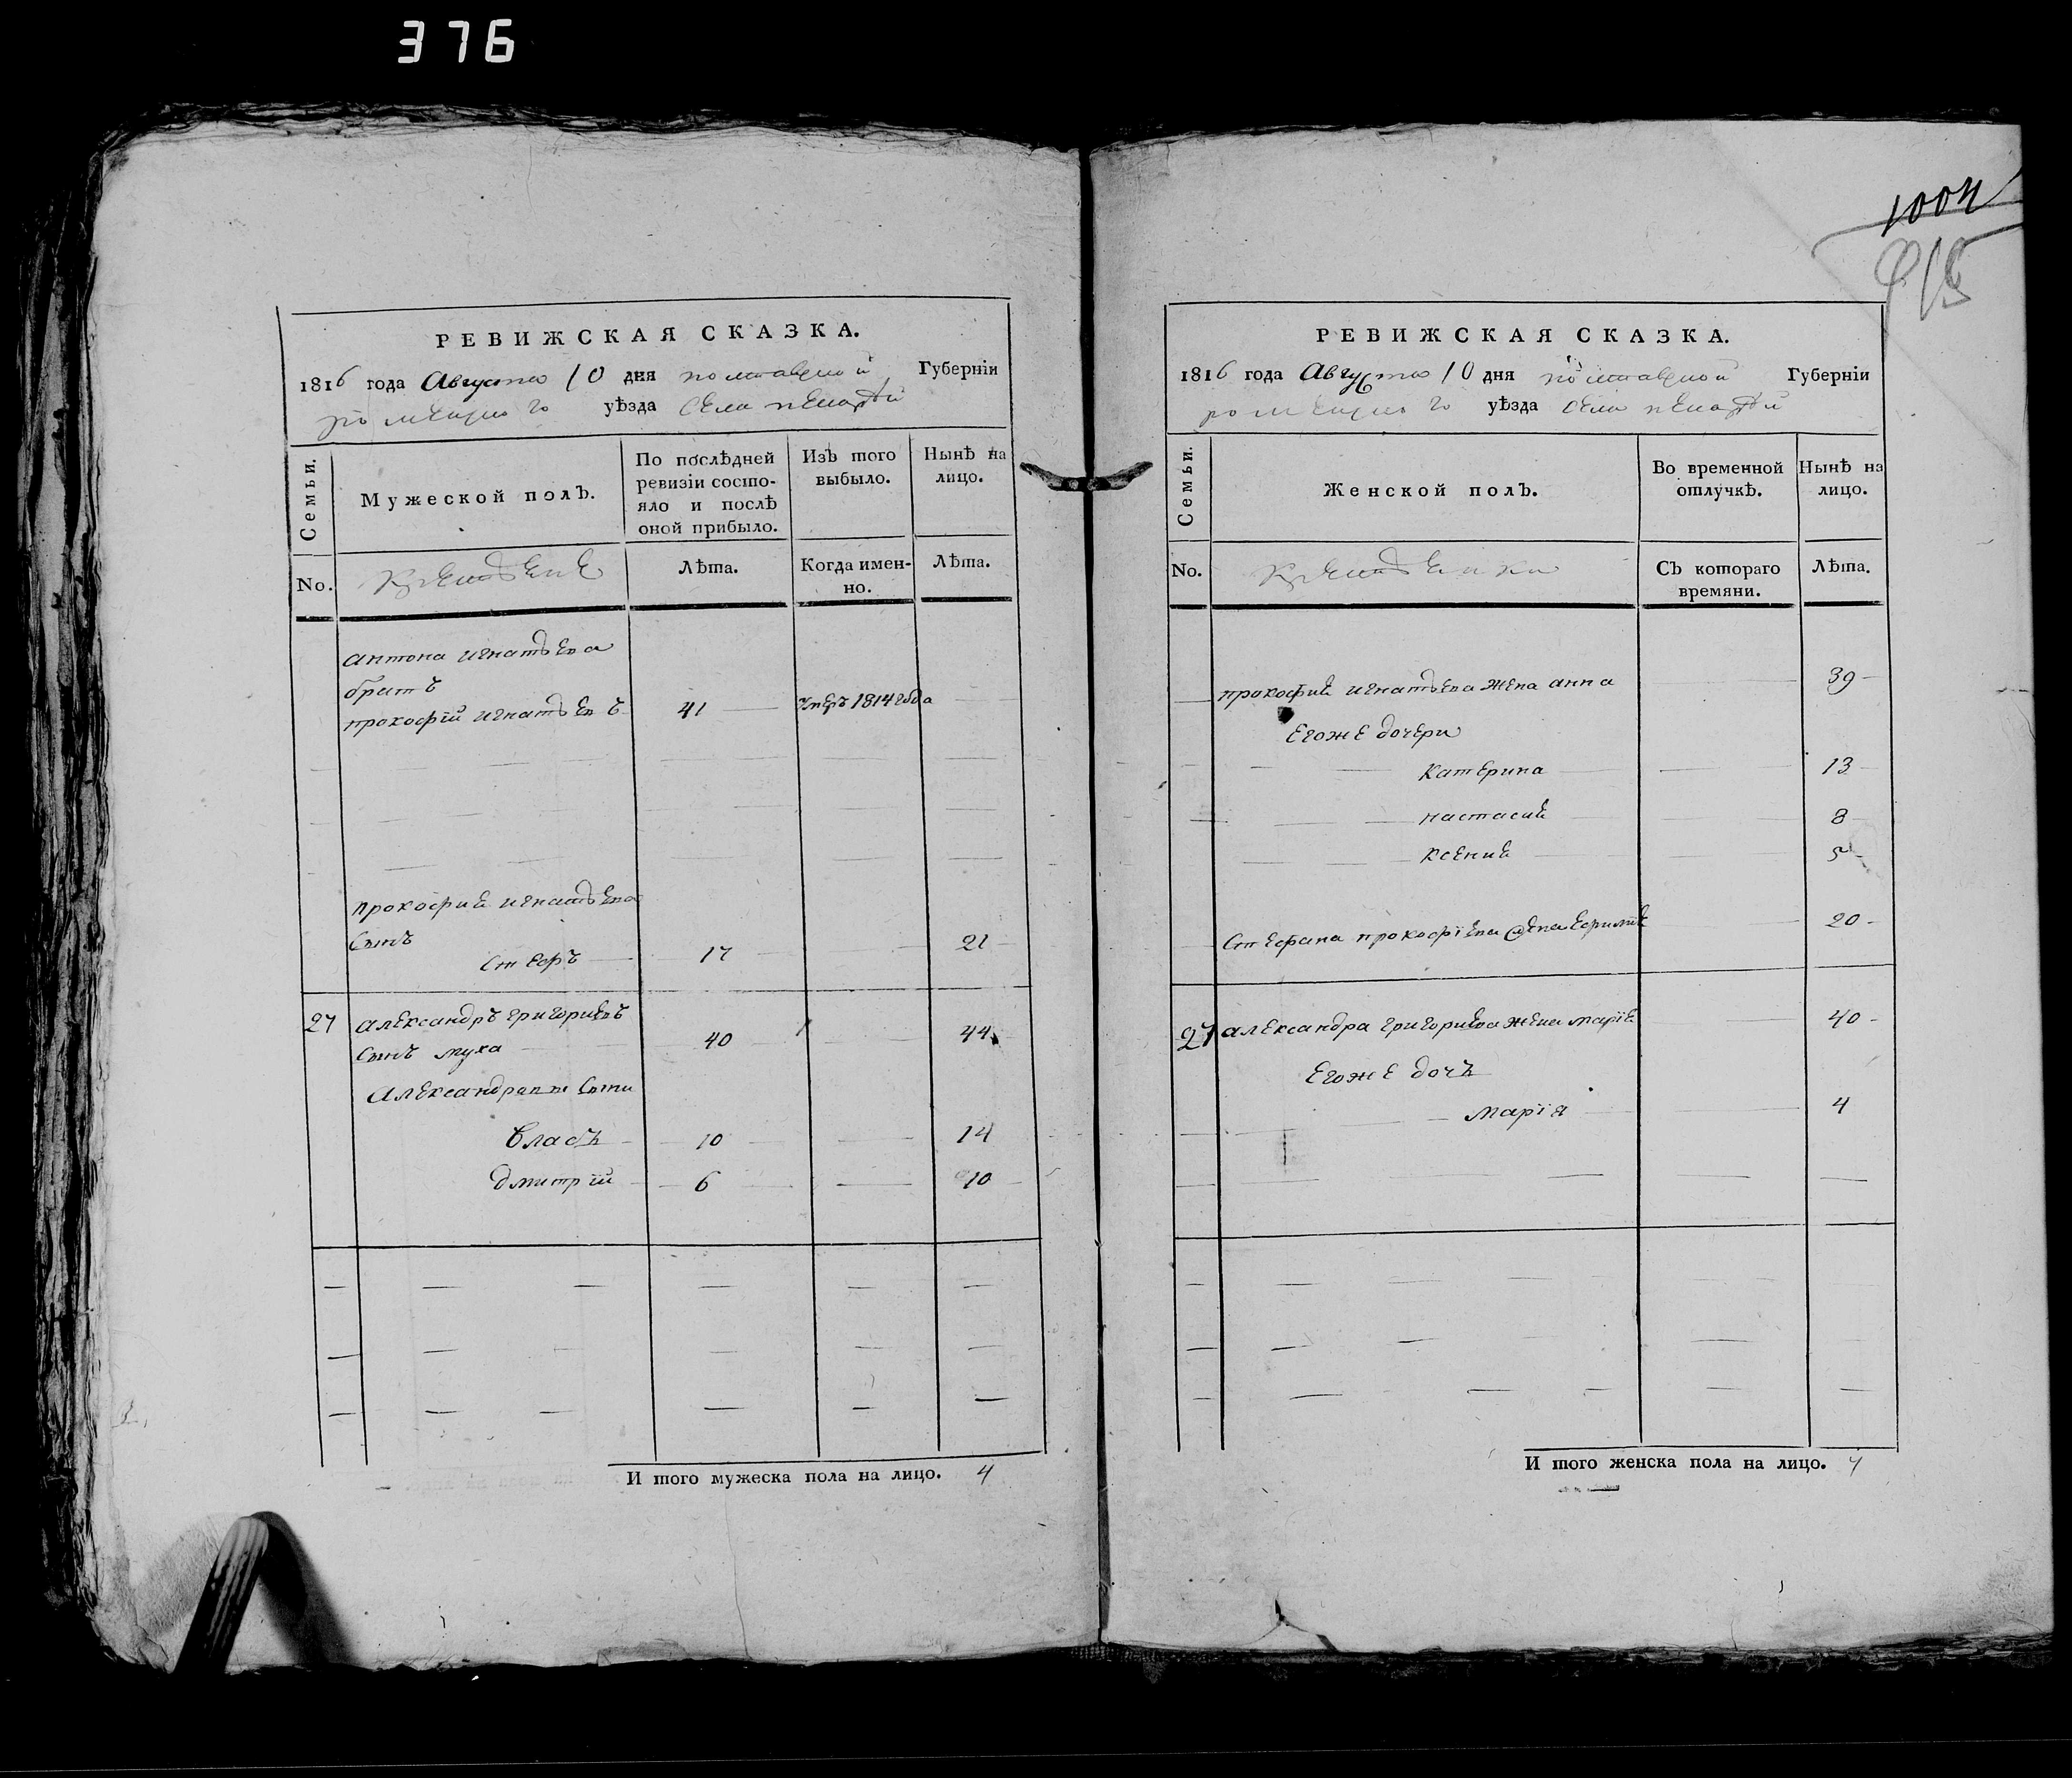 376
1004
РЕВИЖСКАЯ СКАЗКА.
1816 года Августа 10 дня полтавской Губерніи
роменского уѣзда села
Семьи.
Мужеской полъ.
По послѣдней ревизіи состо-
яло и послѣ оной прибыло.
Изъ того выбыло.
Нынѣ на лицо.
No.
Лѣта.
Когда имен-
но.
Лѣта.
антона игнатьева
братъ
прокофій игнатьевъ 41 умеръ 1814 года
прокофия игнатьева
сынъ
Стефъ 17 21
27 александръ григориевъ
сынъ муха 40 44
Александра сыны
Власъ 10 14
дмитрій 6 10
И того мужеска пола на лицо. 4
РЕВИЖСКАЯ СКАЗКА.
1816 года Августа 10 дня полтавской Губерніи
роменского уѣзда села
Семьи.
Женской полъ.
Во временной отлучкѣ.
Нынѣ на лицо.
No.
Съ котораго времяни.
Лѣта.
прокофия игнатьева жена анна 39
Егоже дочери
катерина 13
настасия 8
ксения 5
Стефана прокофїева жена 20
27 александра григориева жена марїя 40
Егоже дочъ
марїя 4
И того женска пола на лицо. 7